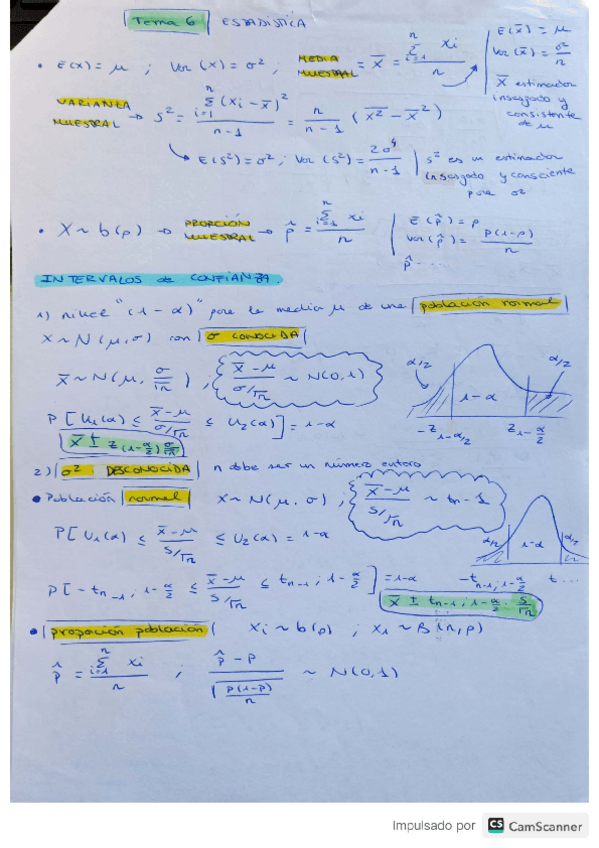 Tema 6 ESTADÍSTICA
• E(x) = μ ; Var (x) = σ² ; MEDIA MUESTRAL = x̄ = Σ(i=1→n) xi / n | E(x̄) = μ
Var (x̄) = σ²/n
x̄ estimador insesgado y consistente de μ
VARIANZA MUESTRAL → s² = Σ(i=1→n) (xi - x̄)² / (n-1) = n/(n-1) (x̄² - x̄²)
↳ E(s²) = σ² ; Var (s²) = 2σ⁴/(n-1) | s² es un estimador
insesgado y consciente
para σ²
• X ~ b(p) → PROPORCIÓN MUESTRAL → p̂ = Σ(i=1→n) xi / n | E(p̂) = p
Var(p̂) = p(1-p)/n
p̂ ...
INTERVALOS de CONFIANZA.
1) nivel "(1 - α)" para la media μ de una población normal
X ~ N(μ, σ) con σ CONOCIDA
x̄ ~ N(μ, σ/√n) ; (x̄ - μ)/(σ/√n) ~ N(0, 1)
α/2 1-α α/2
-z 1-α/2 z 1-α/2
P[U1(α) ≤ (x̄ - μ)/(σ/√n) ≤ U2(α)] = 1-α
x̄ ± z (1-α/2) σ/√n
2) σ² DESCONOCIDA n debe ser un número entero
• Población normal X ~ N(μ, σ) ; (x̄ - μ)/(S/√n) ~ tn-1
P[U1(α) ≤ (x̄ - μ)/(S/√n) ≤ U2(α) = 1-α
α/2 1-α α/2
-t n-1; 1-α/2 t ...
P[-t n-1; 1-α/2 ≤ (x̄ - μ)/(S/√n) ≤ t n-1; 1-α/2] = 1-α
x̄ ± t n-1; 1-α/2 · S/√n
• propoción población xi ~ b(p) ; x1 ~ B(n,p)
p̂ = Σ(i=1→n) xi / n ; (p̂ - p)/√(p(1-p)/n) ~ N(0,1)
Impulsado por CS CamScanner